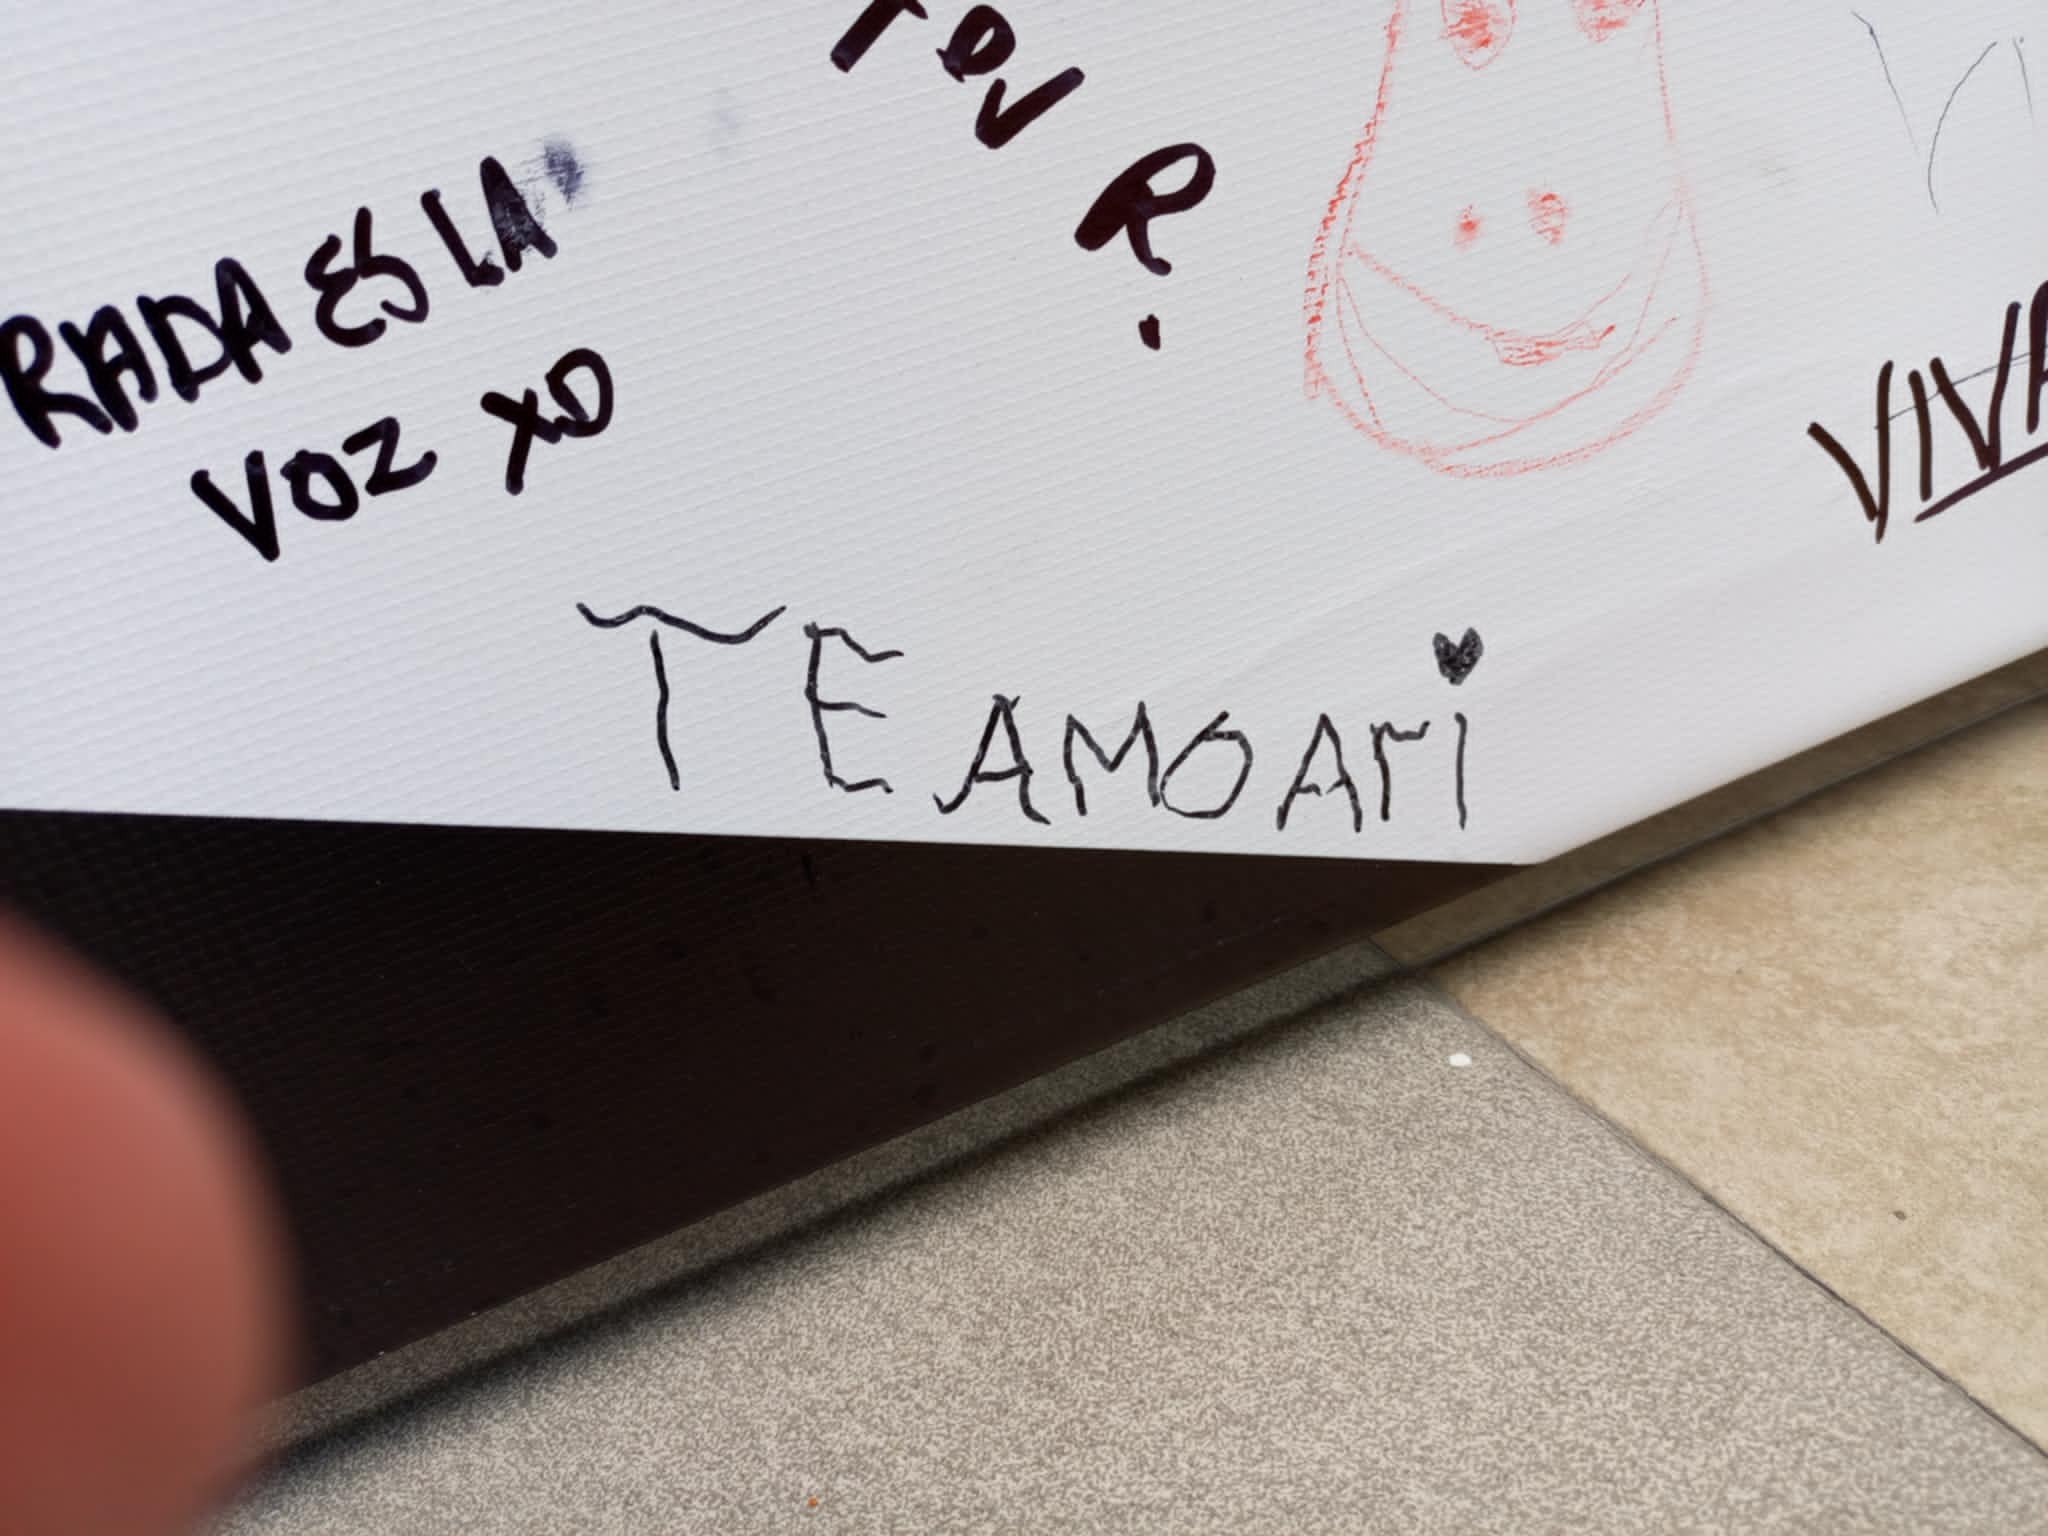 RADA ES LA
VOZ XD
R.
VIVA
TE AMO ARI